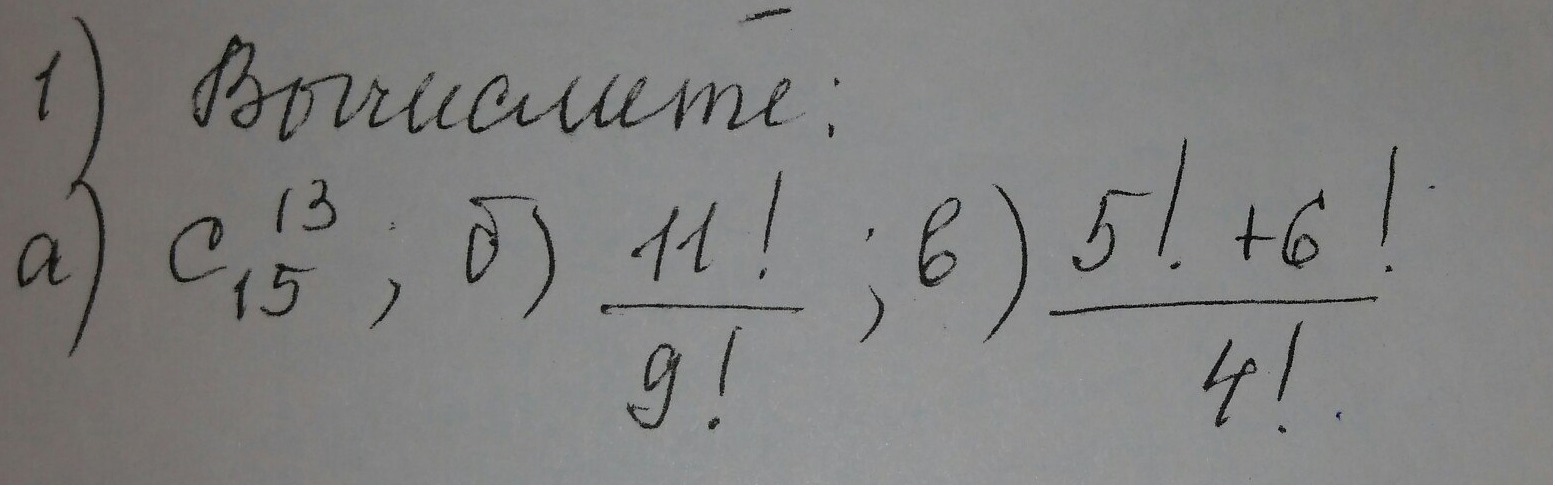 1) Вычислите:
а) C₁₅¹³; б) 11!/9!; в) (5! + 6!)/4!.